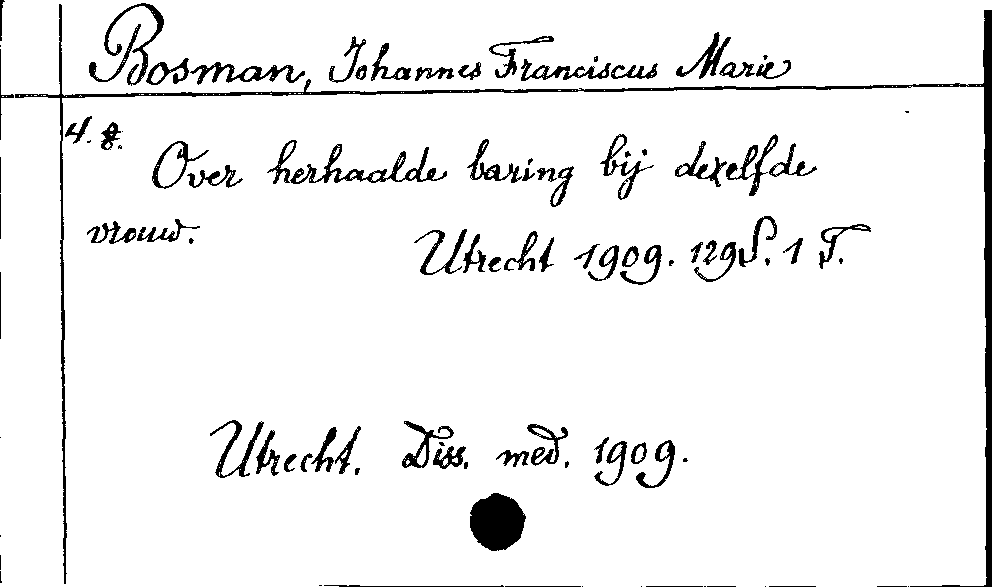 Bosman, Johannes Franciscus Marie
4. 8.
Over herhaalde baring bij dezelfde
vrouw.
Utrecht 1909. 129 S. 1 T.
Utrecht. Diss. med. 1909.